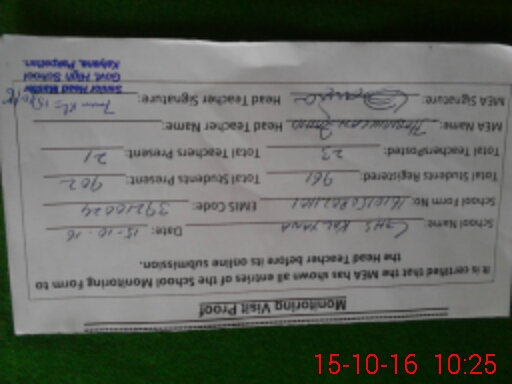 Monitoring Visit Proof
It is certified that the MEA has shown all entries of the School Monitoring Form to
the Head Teacher before its online submission.
School Name: GHS KALYANA Date: 15-10-16
School Form No: EMIS Code: 39210024
Total Students Registered: 961 Total Students Present: 902
Total TeachersPosted: 23 Total Teachers Present: 21
MEA Name: Head Teacher Name:
MEA Signature: Head Teacher Signature:
Senior Head Master
Govt. High School
Kalyana, Pakpattan.
15-10-16 10:25